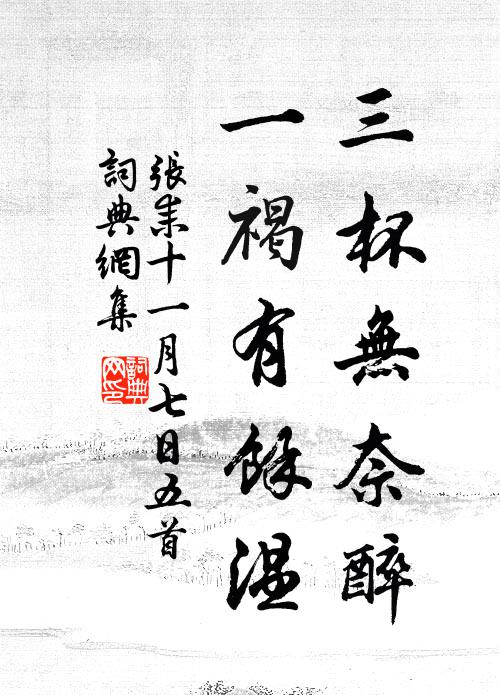 三杯無奈醉
一褐有餘温
張耒十一月七日五首
詞典網集
詞典網印